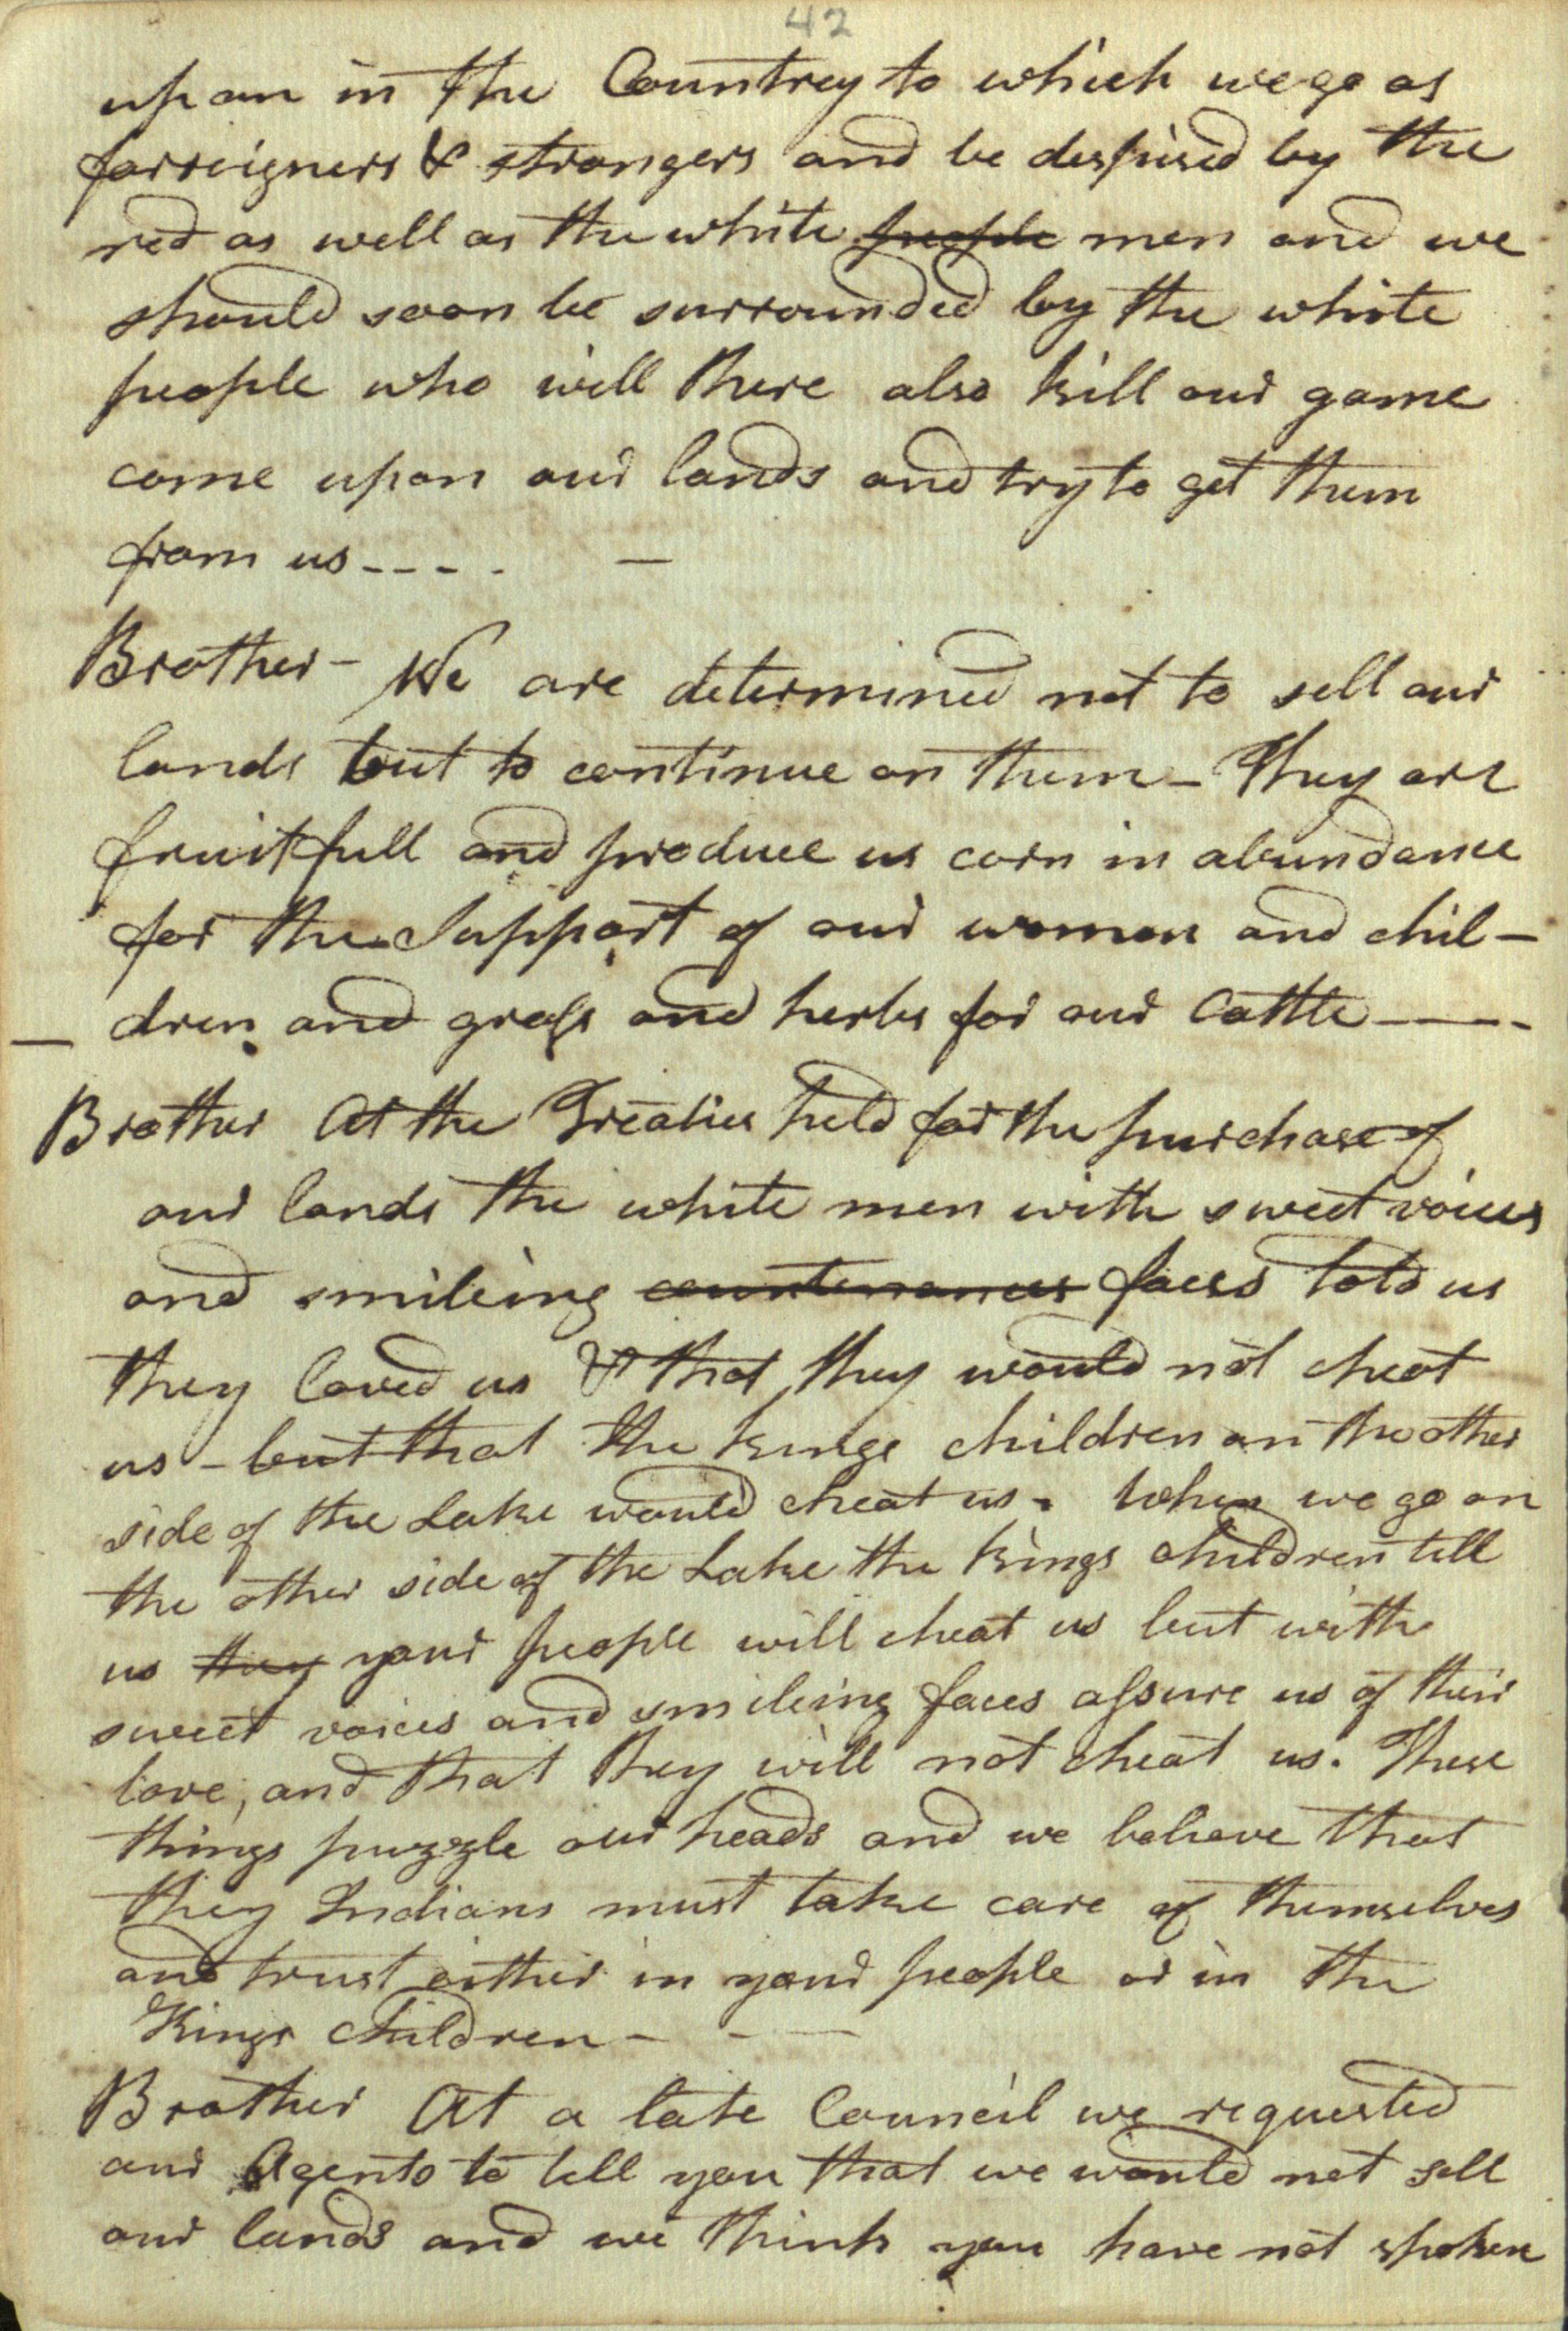 42
upon in the Countrey to which we go as
forreigners & strangers and be despised by the
red as well as the white people men and we
should soon be surrounded by the white
people who will there also kill our game
come upon our lands and try to get them
from us - - - - —
Brother - We are determined not to sell our
lands but to continue on them - They are
fruitfull and produce us corn in abundance
for the Support of our women and chil-
dren and grass and herbs for our Cattle ----
Brother At the Treaties held for the purchase of
our lands the white men with sweet voices
and smileing countenances faces told us
they loved us & that they would not cheat
us - but that the kings children on the other
side of the Lake would cheat us. When we go on
the other side of the Lake the kings children tell
us they your people will cheat us but with
sweet voices and smileing faces assure us of their
love, and that they will not cheat us. These
things puzzle our heads and we beleave that
they Indians must take care of themselves
and trust either in your people or in the
Kings Children - - —
Brother At a late Council we requested
our Agents to tell you that we would not sell
our lands and we think you have not spoken